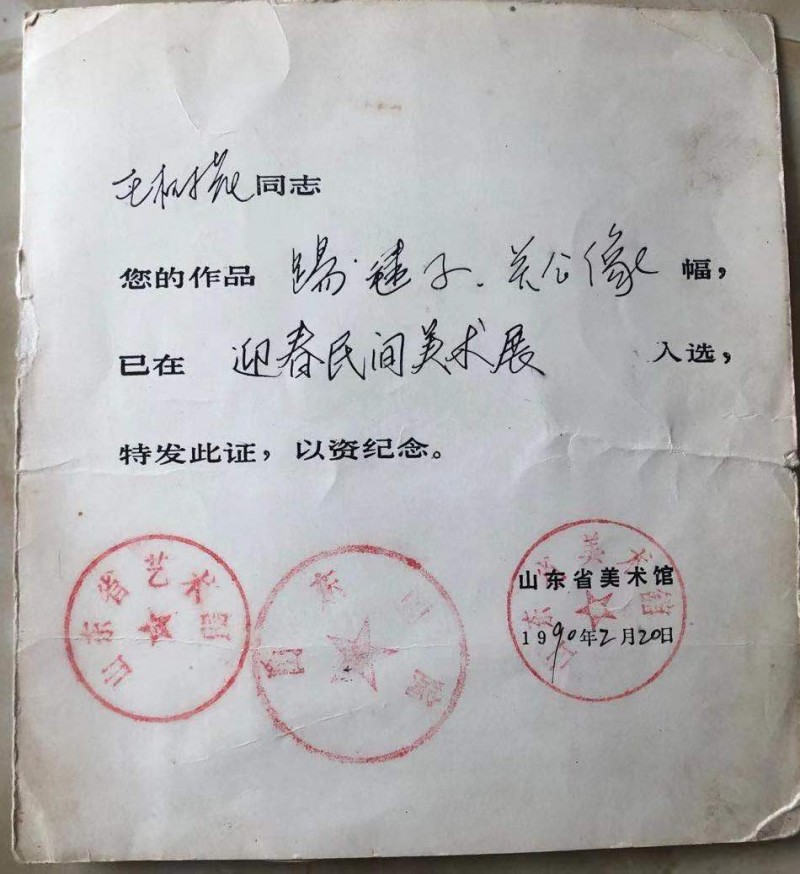 王树花同志
您的作品 踢毽子、关公像 幅，
已在 迎春民间美术展 入选，
特发此证，以资纪念。
山东省艺术馆
山东画院
山东省美术馆
山东省美术馆
1990年2月20日